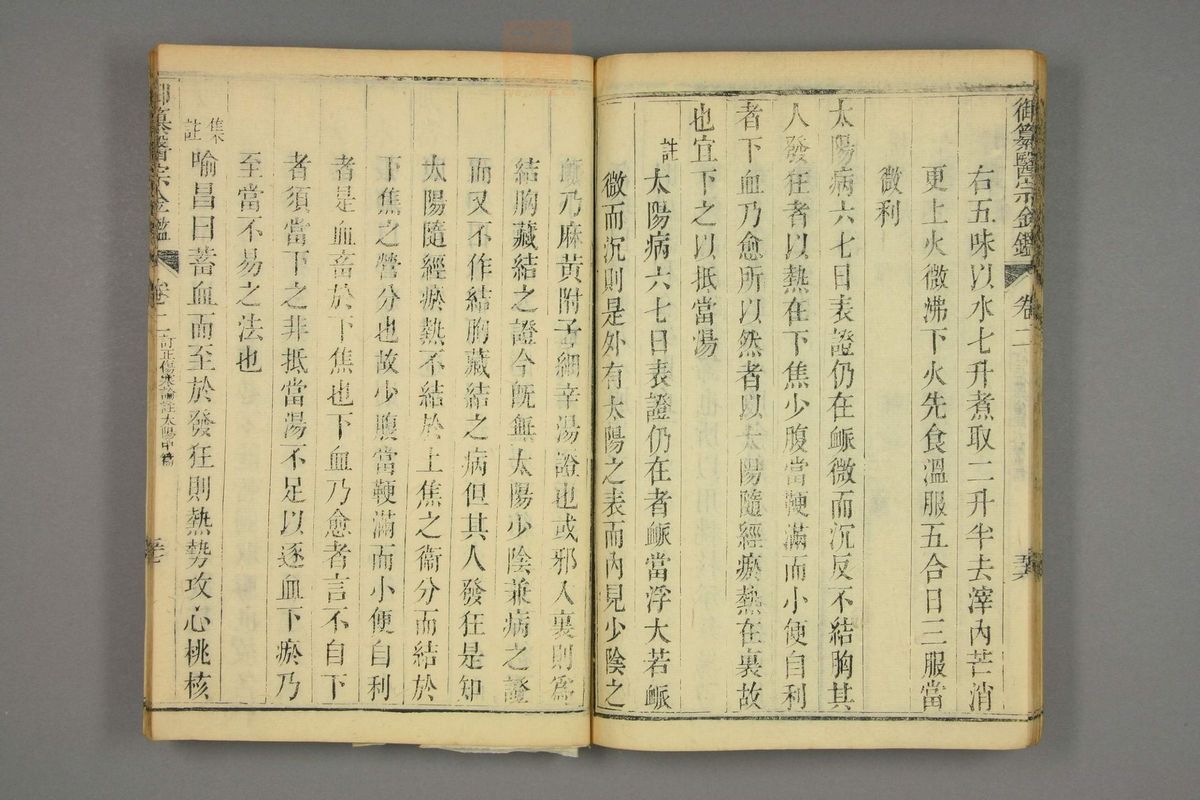 御纂醫宗金鑑 卷二
右五味以水七升煮取二升半去滓內芒消
更上火微沸下火先食溫服五合日三服當
微利
太陽病六七日表證仍在脈微而沉反不結胸其
人發狂者以熱在下焦少腹當鞕滿而小便自利
者下血乃愈所以然者以太陽隨經瘀熱在裏故
也宜下之以抵當湯
註
太陽病六七日表證仍在者脈當浮大若脈
微而沉則是外有太陽之表而內見少陰之
脈乃麻黃附子細辛湯證也或邪入裏則爲
結胸藏結之證今既無太陽少陰兼病之證
而又不作結胸藏結之病但其人發狂是知
太陽隨經瘀熱不結於上焦之衛分而結於
下焦之營分也故少腹當鞕滿而小便自利
者是血畜於下焦也下血乃愈者言不自下
者須當下之非抵當湯不足以逐血下瘀乃
至當不易之法也
集註
喻昌曰蓄血而至於發狂則熱勢攻心桃核
御纂醫宗金鑑 卷二 訂正傷寒論註太陽中篇